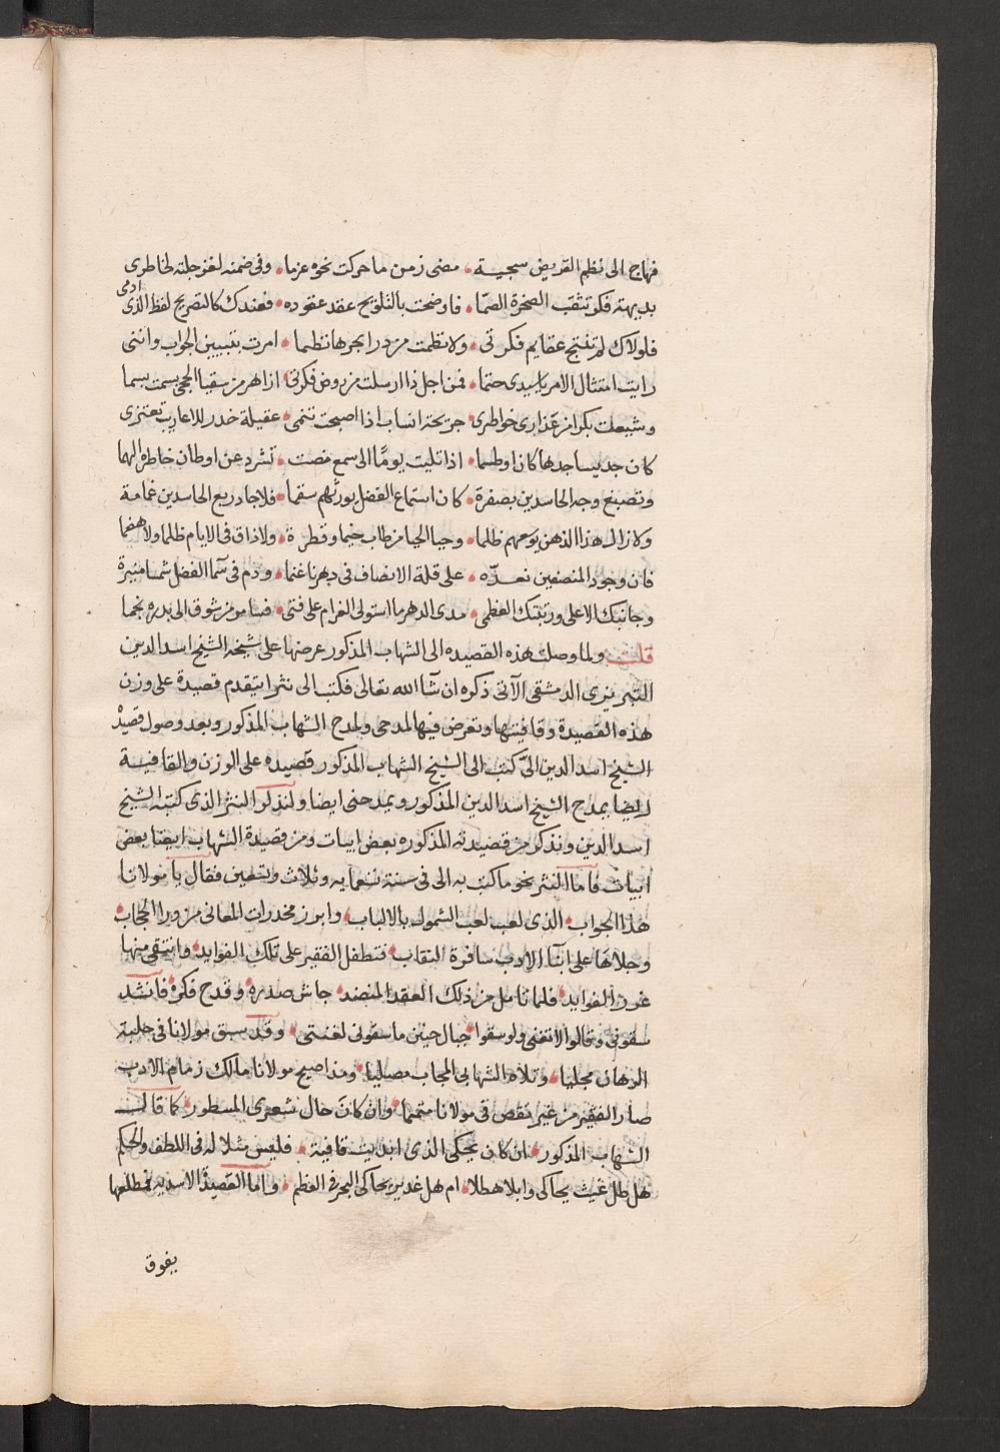 فهاج الى نظم القريض سجية • مضى زمن ما حركت نحوه عزما • وفى ضمنه لغز جلته لخاطرى
بديهة فكر تثقب الصخرة الصما • فاوضحت بالتلويح عقد عقوده • فعندك كالتصريح لفظ الذى ادمى
فلولاك لم تفتح عقايم فكرتى • ولا نظمت من در ابحرها نظما • امرت بتبيين الجواب واننى
رايت امتثال الامر يا سيدى حتما • فمن اجل ذا ارسلت من روض فكرتى ازاهر من سقيا الحجى بسمت بسما
وشيعت بكرا من عذارى خواطرى • جريحة انساب اذا اصبحت تنمى • عقيلة خدر للاعاريب تعتزى
كان جديسا جدها كان او طسما • اذا تليت يوما الى سمع منصت • تشرد عن اوطان خاطره الهما
وتصبغ وجه الحاسدين بصفرة • كان استماع الفضل يورثهم سقما • فلا جاد ربع الحاسدين غمامة
ولا زال هذا الذهن يوسعهم ظلما • وحيا الحيا من طاب خيما وفطرة • ولا ذاق فى الايام ظلما ولا هضما
فان وجود المنصفين نعده • على قلة الانصاف فى دهرنا غنما • ودم فى سما الفضل شمسا منيرة
وجانبك الاعلى ورتبتك العظمى • مدى الدهر ما استولى الغرام على فتى • فسامر من شوق الى بدره نجما
قلت ولما وصلت هذه القصيده الى الشهاب المذكور عرضها على شيخه الشيخ اسد الدين
التبريزى الدمشقى الآتى ذكره ان شآ الله تعالى فكتب الى نثرا يتقدم قصيدة على وزن
هذه القصيدة وقافيتها وتعرض فيها لمدحى ولمدح الشهاب المذكور وبعد وصول قصيدة
الشيخ اسد الدين الىّ كتب الى الشيخ الشهاب المذكور قصيده على الوزن والقافية
ايضا يمدح الشيخ اسد الدين المذكور ويمدحنى ايضا ولنذكر النثر الذى كتبه الشيخ
اسد الدين ونذكر من قصيدته المذكوره بعض ابيات ومن قصيدة الشهاب ايضا بعض
ابيات فاما النثر نحو ما كتب به الى فى سنة تسعمايه وثلاث وتسعين فقال يا مولانا
هذا الجواب • الذى لعب لعب الشمول بالالباب • وابرز مخدرات المعانى من ورا الحجاب •
وجلاها على ابنآ الادب سافرة النقاب • فتطفل الفقير على تلك الفوايد • وانتقى منها
غرر الفرايد • فلما تامل من ذلك العقد المنضد • جاش صدره • وقدح فكره • فانشد
سقونى وقالوا لا تغنى ولو سقوا • جبال حنين ما سقونى لغنتى • وقد سبق مولانا فى حلبة
الرهان مجليا • وتلاه الشهابى المجاب مصليا • ومذ اصبح مولانا مالك زمام الادب
صار الفقير من غير نقص فى مولانا متمما • وان كان حال شعرى المسطور • كما قالت
الشهاب المذكور • ان كان يحكى الذى ابديت قافية • فليس مثلا له فى اللطف والحكم
هل طل غيث يحاكى وابلا هطلا • ام هل غدير يحاكى البحر فى العظم • واما القصيدة الاسديه فمطلعها
يفوق